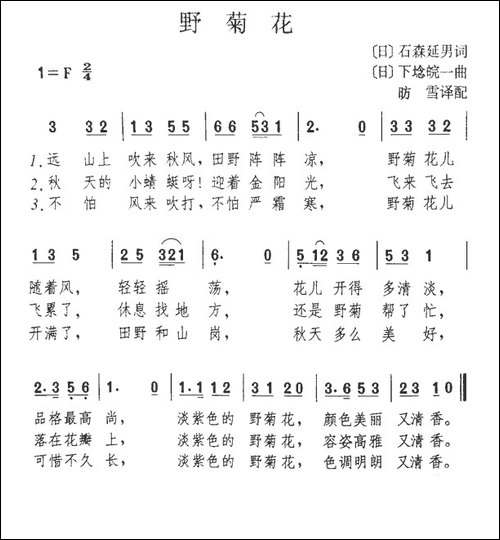 野菊花
〔日〕石森延男词
1=F 2/4
〔日〕下埝皖一曲
昉 雪译配
3 32 | 13 55 | 66 531 | 2. 0 | 33 32 |
1.远 山上 吹来 秋风,田野 阵阵 凉, 野菊 花儿
2.秋 天的 小蜻 蜓呀!迎着 金阳 光, 飞来 飞去
3.不 怕 风来 吹打,不怕 严霜 寒, 野菊 花儿
13 5 | 25 321 | 6. 0 | 512 36 | 53 1 |
随着风, 轻轻 摇 荡, 花儿 开得 多清 淡,
飞累了, 休息 找地 方, 还是 野菊 帮了 忙,
开满了, 田野 和山 岗, 秋天 多么 美 好,
2.3 56 | 1. 0 | 1.1 12 | 31 20 | 3.6 53 | 23 10 ‖
品格最高 尚, 淡紫色的 野菊花, 颜色美丽 又清香。
落在花瓣 上, 淡紫色的 野菊花, 容姿高雅 又清香。
可惜不久 长, 淡紫色的 野菊花, 色调明朗 又清香。